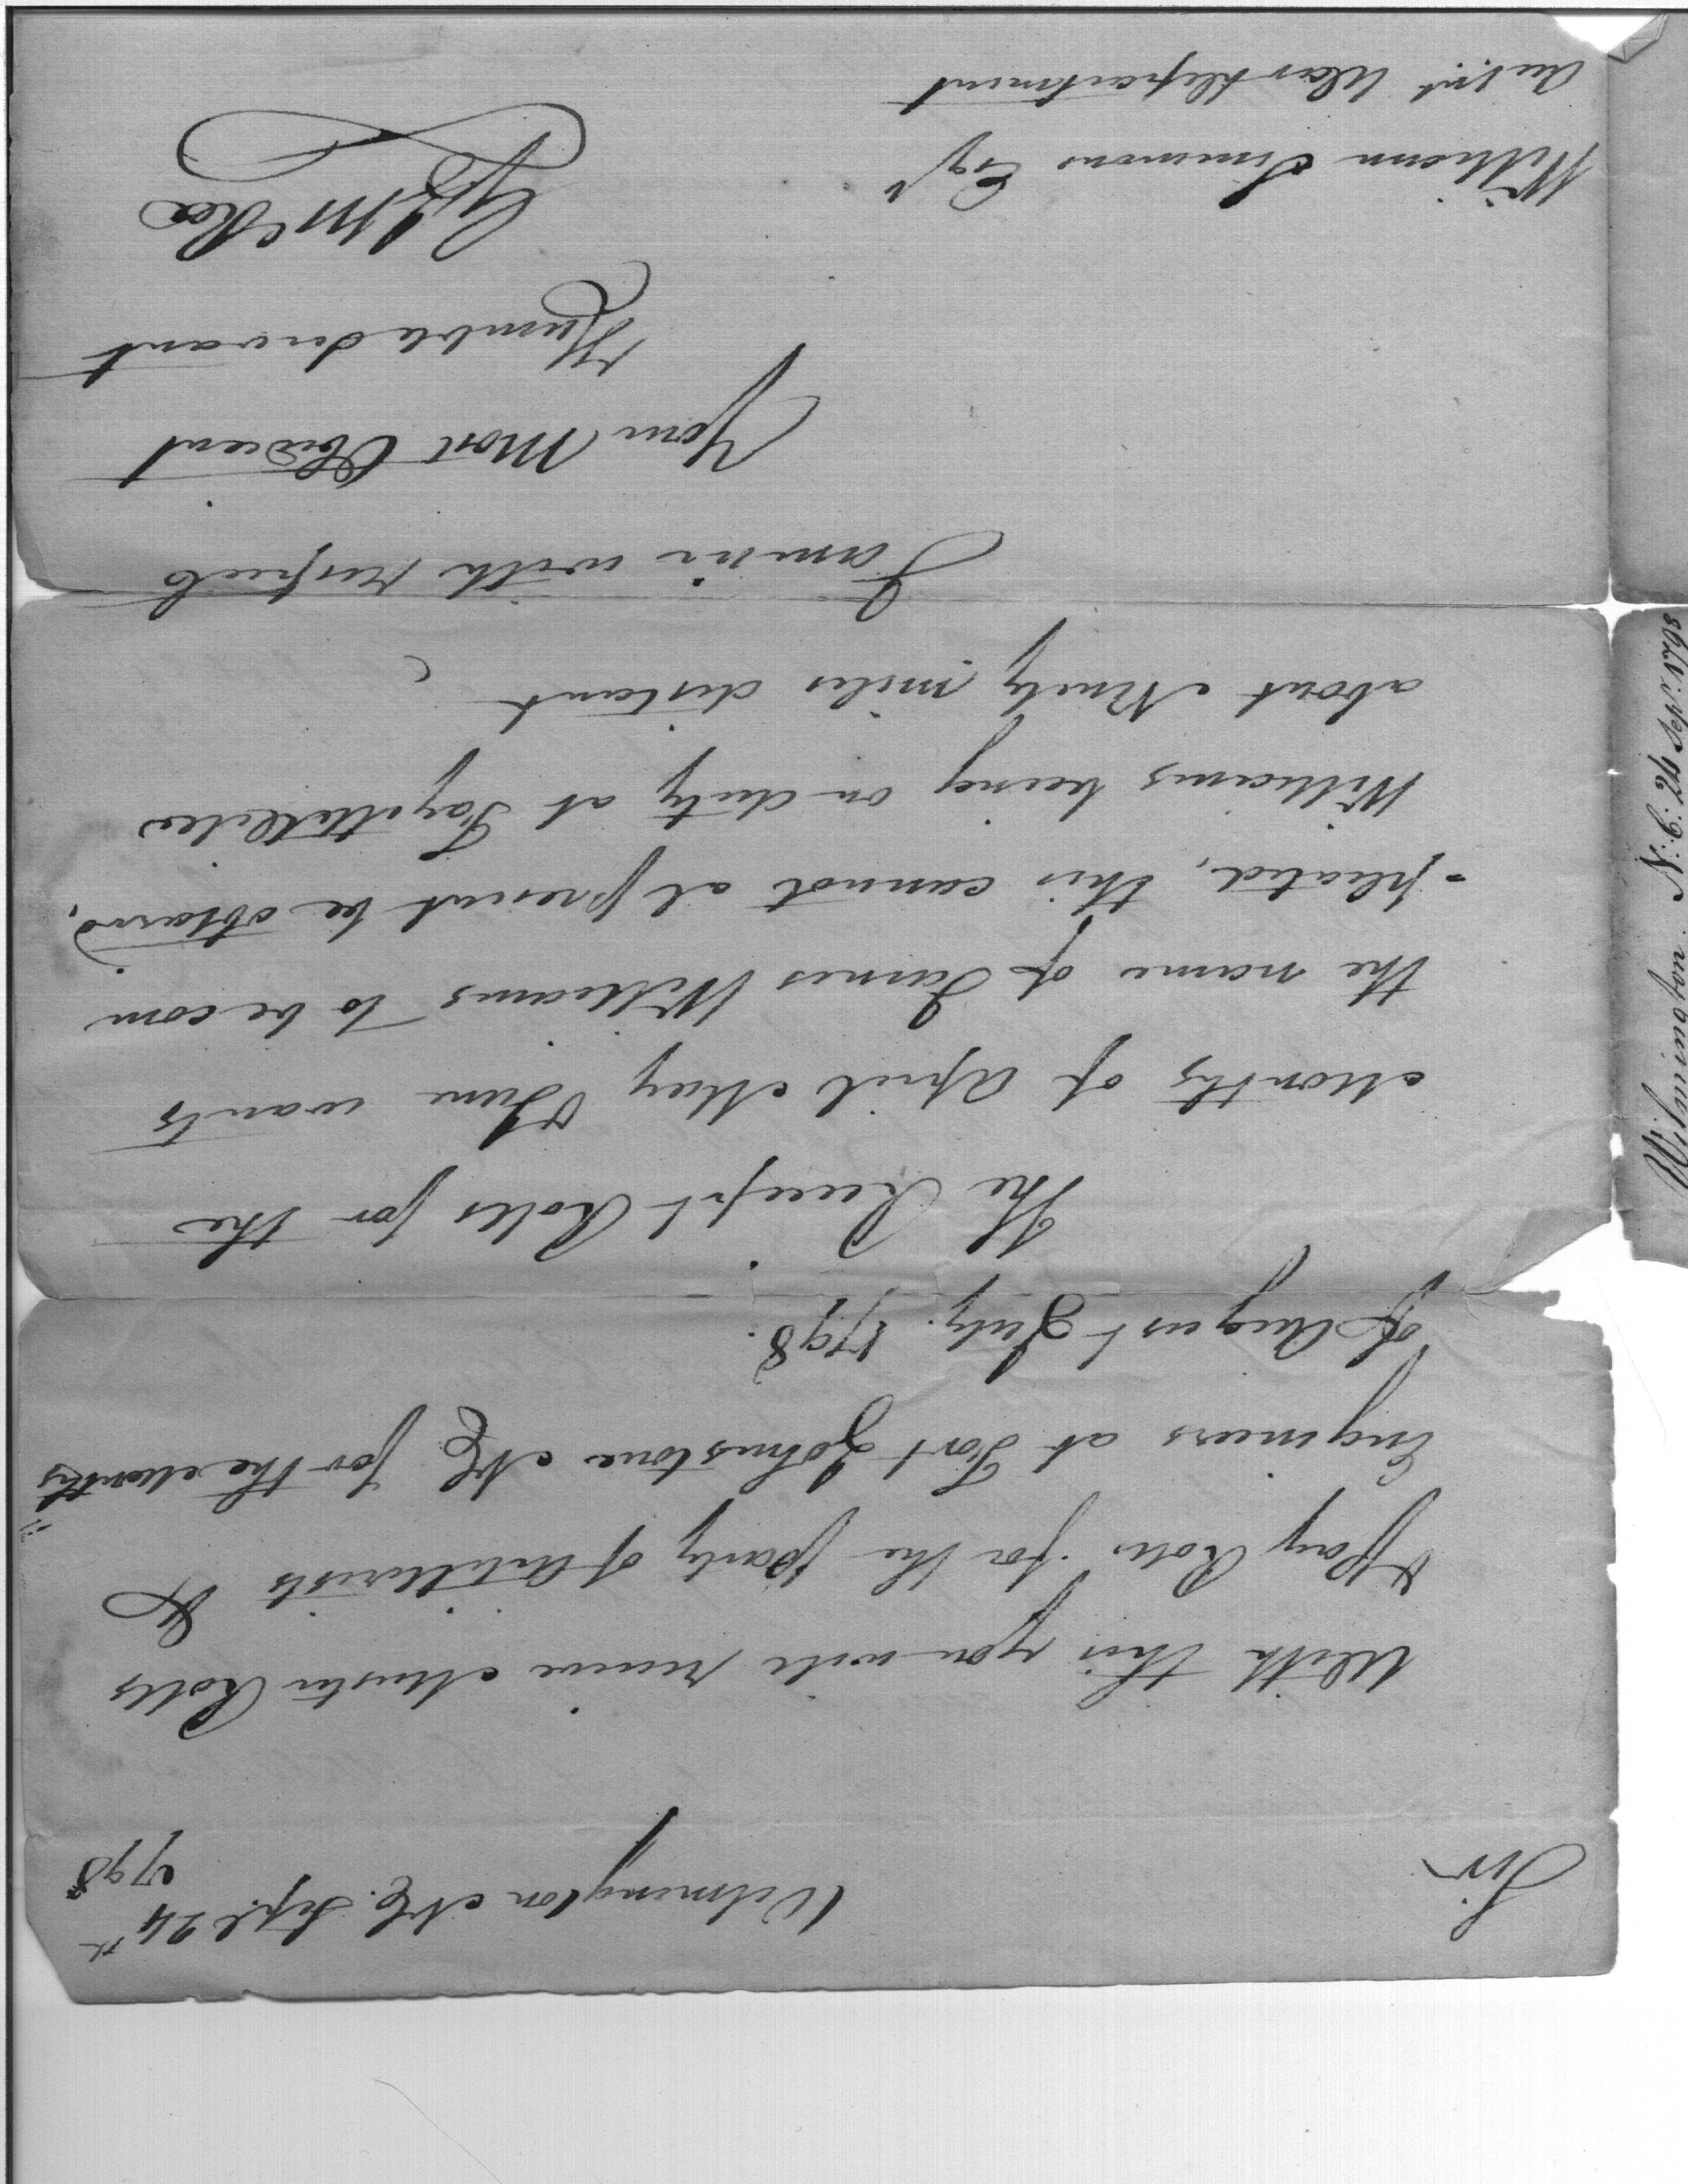 Wilmington NC. Sept. 24th
1798
Sir
With this you will receive Muster Rolls
& Pay Rolls for the party of Artillerists &
Engineers at Fort Johnstone NC for the Months
of August & July. 1798.
The Receipt Rolls for the
Months of April May & June wants
the name of James Williams to be com
-pleated, this cannot at present be obtaind,
Williams being on duty at Fayetteville
about Ninety miles distant
I am sir with respect
Your Most Obedient
Humble Servant
McRee
William Simmons Esqr
Acct. War Department
Wilmington. N: C: 24 Sept. 1798